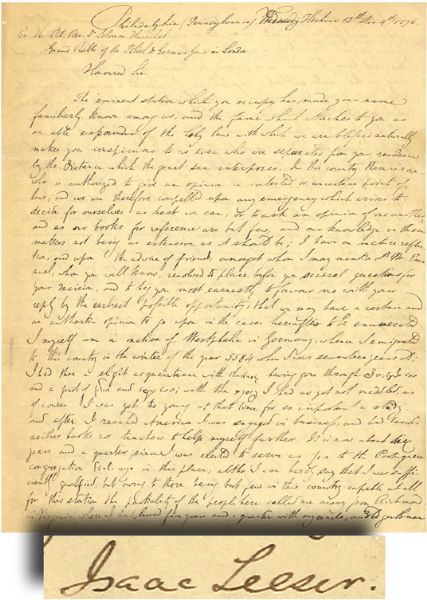 Philadelphia (Pennsylvania)
To the
Grand Rabbi of the in London
Honoured Sir
The eminent station which you occupy has made your name
familiarly known among us, and the fame which attaches to you as
an able expounder of the holy law with which we are blessed naturally
make you conspicuous to us even who are separated from your residence
by the distance which the great sea interposes. In this country there is no one
who is authorized to give an opinion in contested or uncertain points of
law, and we are therefore compelled upon any emergency which arises to
decide for ourselves as best we can, or to ask an opinion of one another
and as our books for reference are but few, and our knowledge in those
matters not being as extensive as it should be; I have on mature reflec-
tion, and upon the advice of friends, amongst whom I may mention Mr.
whom you well know, resolved to place before you several questions for
your decision, and to beg you most earnestly to favour me with your
reply by the earliest possible opportunity, that we may have a certain and
an authentic opinion to go upon in the cases hereafter to be enumerated
I myself am a native of Westphalia in Germany, whence I emigrated
to this country in the winter of the year 5584 when I was seventeen years old;
I had then a slight acquaintance with having gone through
and a part of and with the I had as yet not meddled as
of course I was yet too young at that time for so important a study
and after I reached America I was engaged in business, and had besides
neither books nor teachers to help myself further. It is now about six
years and a quarter since I was elected to serve as to the Portuguese
congregation in this place, altho' I can hardly say that I was suffi-
ciently qualified, but owing to there being but few in this country capable at all
for this station the partiality of the people here called me away from Richmond
in Virginia where I had lived five years and a quarter with my uncle, and
Isaac Leeser.